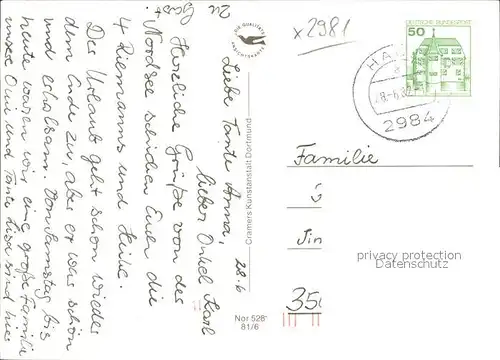 28.6
Liebe Tante Anna,
lieber Onkel Karl
Herzliche Grüße von der
Nordsee senden Euch die
4 Riemanns und Heike.
Der Urlaub geht schon wieder
dem Ende zu, aber er war schön
und erholsam. Von Samstag bis
heute waren wir eine große Familie
unsere Omi und Tante Lisa sind hier
zu
Gast
DIE QUALITÄTS
ANSICHTSKARTE
Cramers Kunstanstalt Dortmund
Nor 528
81/6
x 2981
DEUTSCHE BUNDESPOST
50
HA
28.-6.82
2984
Familie
350
privacy protection
Datenschutz